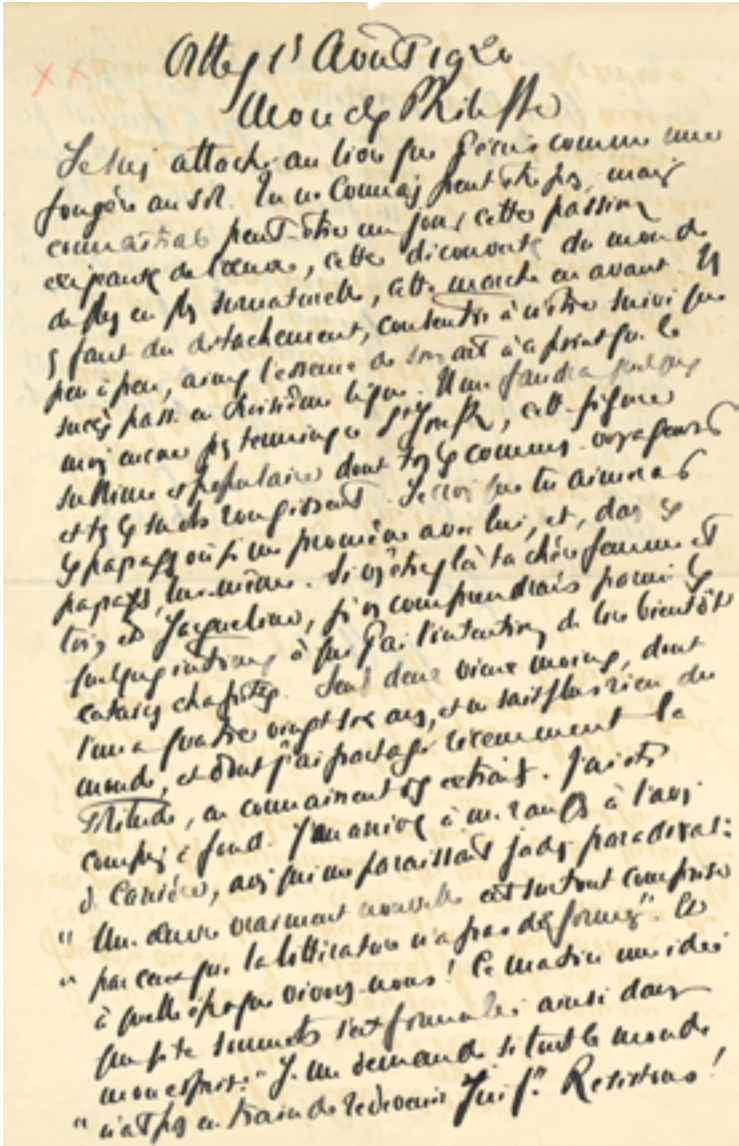 Orthez 15 Août 1920
Mon cher Philippe
Je suis attaché au livre que j'écris comme une
fougère au sol. Tu ne connais peut-être pas, mais
connaîtras peut-être un jour, cette passion
exigeante de l'œuvre, cette découverte du monde
de plus en plus surnaturelle, cette marche en avant. Il
y faut du détachement, consentir à n'être suivi que
peu à peu, aimer l'essence de son art à ce point que le
succès passe en troisième ligne. Il me faudra quelques
mois encore pour terminer ce Joseph, cette figure
sublime et populaire dont tous les commis-voyageurs
et tous les snobs rougissent. Je crois que tu aimeras
les paysages où je me promène avec lui, et, dans les
paysages, lui-même. Si vous étiez là ta chère femme et
toi, et Jacqueline, je vous comprendrais parmi les
quelques intimes à qui j'ai l'intention de lire bientôt
certains chapitres. Seuls deux vieux moines, dont
l'un a quatre vingt six ans, et ne sait plus rien du
monde, et dont j'ai partagé récemment la
solitude, en connaissent des extraits. J'ai été
compris à fond. J'en arrive à me ranger à l'avis
de Carrière, avis qui me paraissait jadis paradoxal:
" Une œuvre vraiment nouvelle est surtout comprise
" par ceux que la littérature n'a pas déformés". Et
à quelle époque vivons-nous! Ce matin une idée
mon esprit: "Je me demande si tout le monde
" n'est pas en train de redevenir Juif". Résistons!